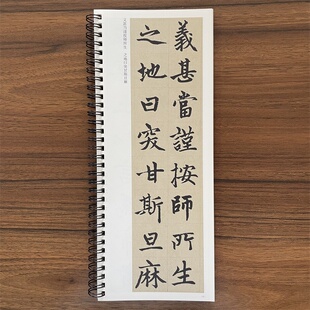 義甚當謹按師所生
之地曰突甘斯旦麻